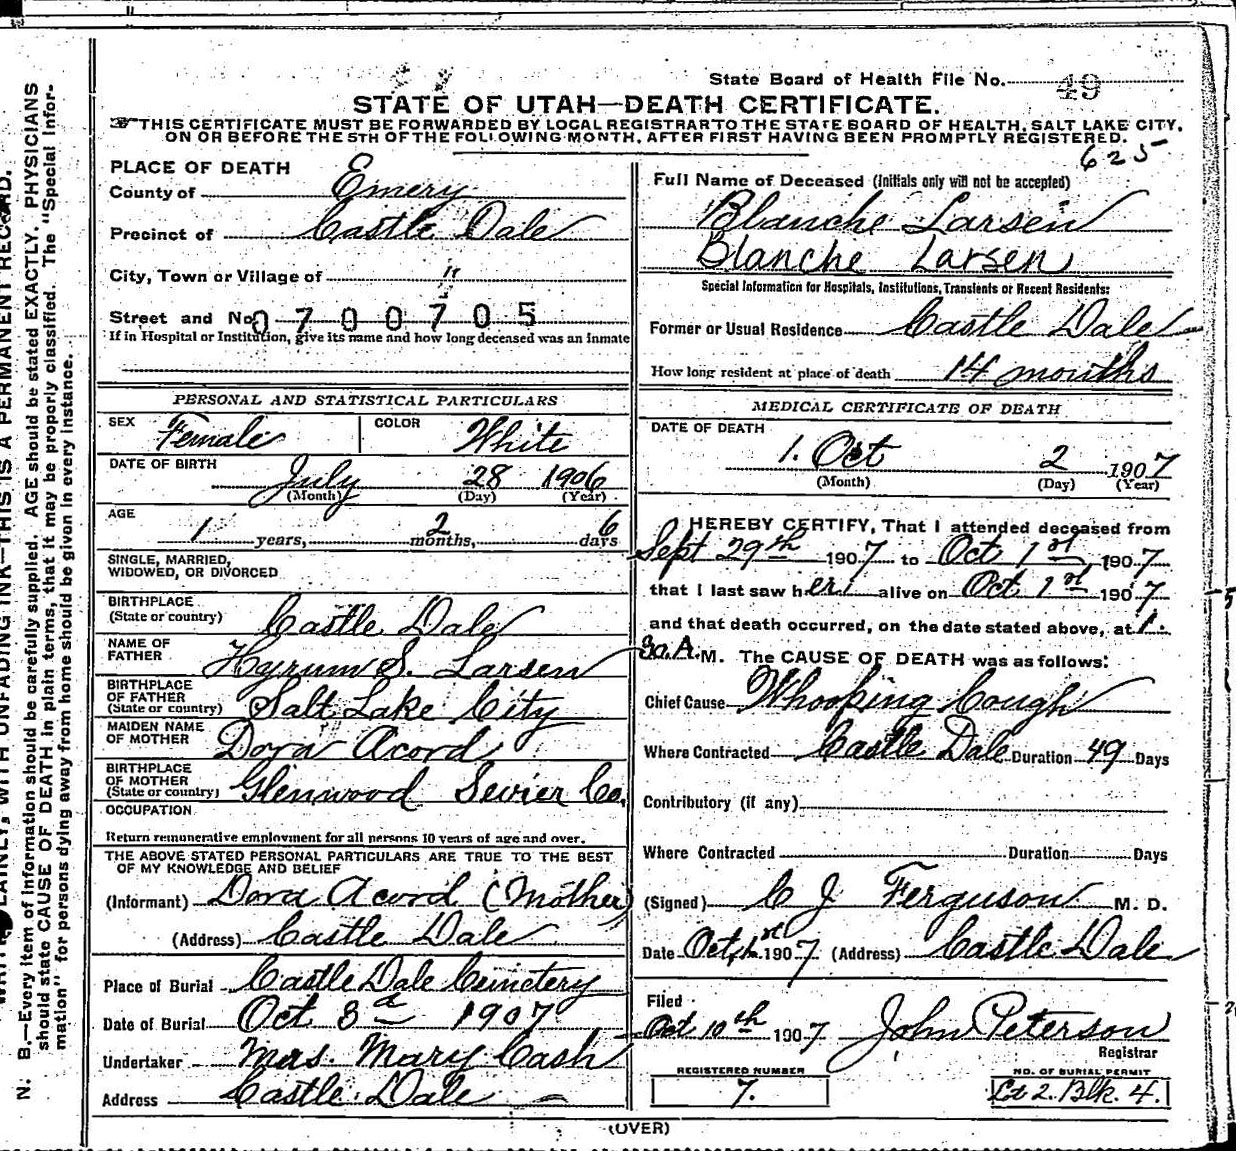 State Board of Health File No. 49
STATE OF UTAH—DEATH CERTIFICATE.
THIS CERTIFICATE MUST BE FORWARDED BY LOCAL REGISTRAR TO THE STATE BOARD OF HEALTH, SALT LAKE CITY,
ON OR BEFORE THE 5TH OF THE FOLLOWING MONTH, AFTER FIRST HAVING BEEN PROMPTLY REGISTERED.
625
PLACE OF DEATH
County of Emery
Precinct of Castle Dale
City, Town or Village of "
Street and No. 0700705
If in Hospital or Institution, give its name and how long deceased was an inmate
PERSONAL AND STATISTICAL PARTICULARS
SEX Female COLOR White
DATE OF BIRTH July 28 1906
(Month) (Day) (Year)
AGE 1 years, 2 months, 6 days
SINGLE, MARRIED,
WIDOWED, OR DIVORCED
BIRTHPLACE
(State or country) Castle Dale
NAME OF
FATHER Hyrum S. Larsen
BIRTHPLACE
OF FATHER
(State or country) Salt Lake City
MAIDEN NAME
OF MOTHER Dora Acord
BIRTHPLACE
OF MOTHER
(State or country) Glenwood Sevier Co.
OCCUPATION
Return remunerative employment for all persons 10 years of age and over.
THE ABOVE STATED PERSONAL PARTICULARS ARE TRUE TO THE BEST
OF MY KNOWLEDGE AND BELIEF
(Informant) Dora Acord (Mother)
(Address) Castle Dale
Place of Burial Castle Dale Cemetery
Date of Burial Oct 3d 1907
Undertaker Mrs. Mary Cash
Address Castle Dale
Full Name of Deceased (Initials only will not be accepted)
Blanche Larsen
Blanche Larsen
Special Information for Hospitals, Institutions, Transients or Recent Residents:
Former or Usual Residence Castle Dale
How long resident at place of death 14 months
MEDICAL CERTIFICATE OF DEATH
DATE OF DEATH
1. Oct 2 1907
(Month) (Day) (Year)
I HEREBY CERTIFY, That I attended deceased from
Sept 29th 1907 to Oct 1st, 1907
that I last saw her alive on Oct 1st 1907
and that death occurred, on the date stated above, at 1.
30 A. M. The CAUSE OF DEATH was as follows:
Chief Cause Whooping Cough
Where Contracted Castle Dale Duration 49 Days
Contributory (if any)
Where Contracted Duration Days
(Signed) C J Ferguson M. D.
Date Oct 1st 1907 (Address) Castle Dale
Filed
Oct 10th 1907 John Peterson
Registrar
REGISTERED NUMBER
7.
NO. OF BURIAL PERMIT
Lot 2. Blk. 4.
(OVER)
PLAINLY, WITH UNFADING INK—THIS IS A PERMANENT RECORD.
N. B.—Every item of information should be carefully supplied. AGE should be stated EXACTLY. PHYSICIANS
should state CAUSE OF DEATH in plain terms, that it may be properly classified. The "Special Infor-
mation" for persons dying away from home should be given in every instance.